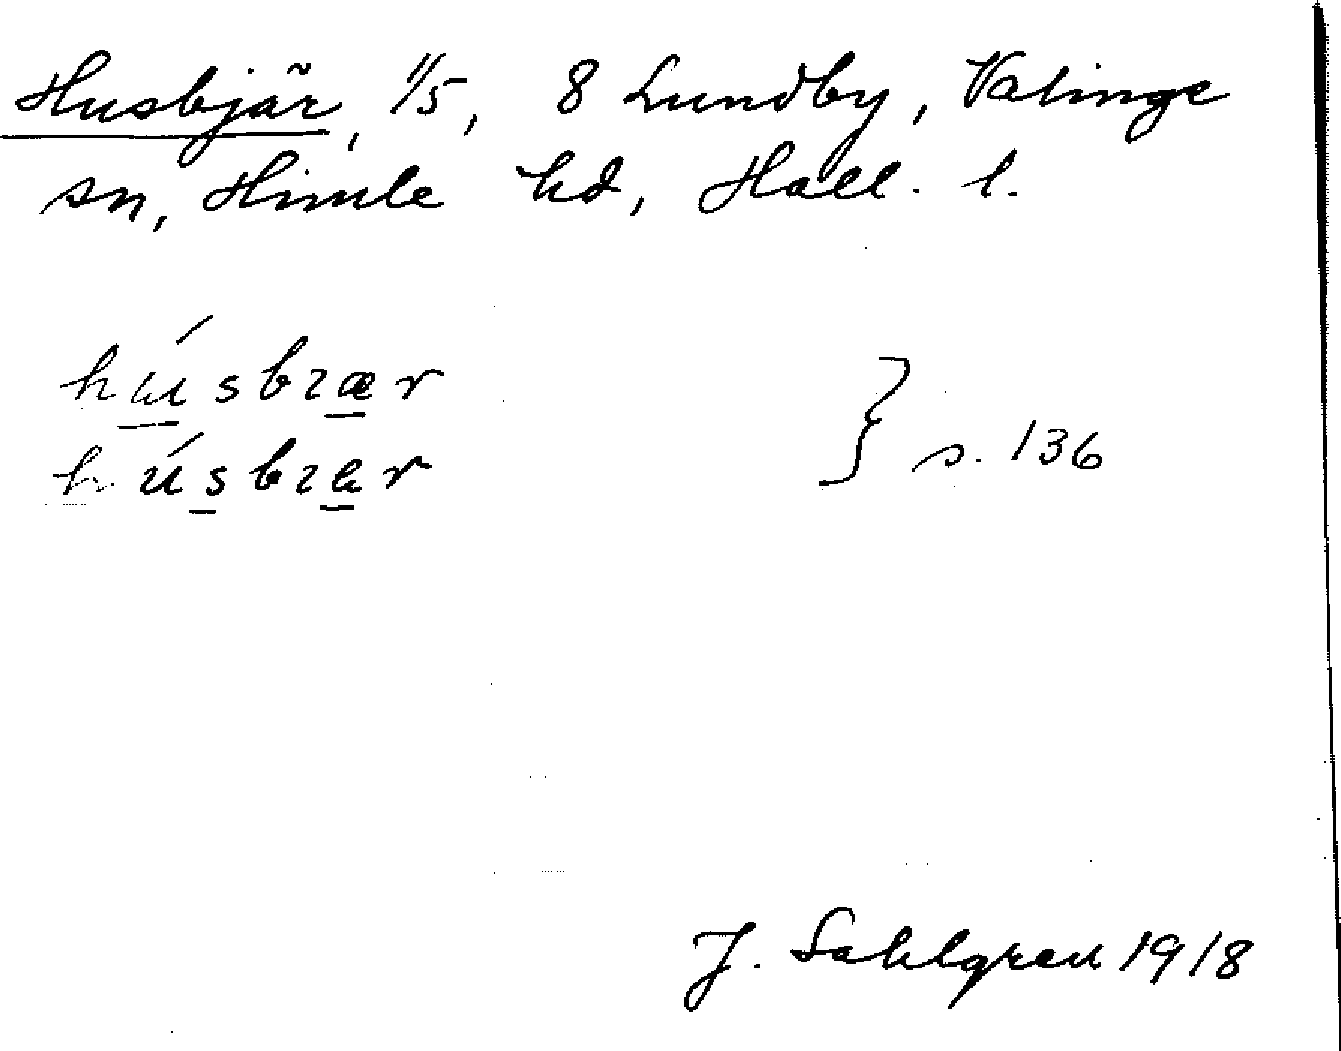 Husbjär, 1/5, 8 Lundby, Valinge
sn, Himle hd, Hall. l.
húsbɿær
húsbɿær } s. 136
J. Sahlgren 1918